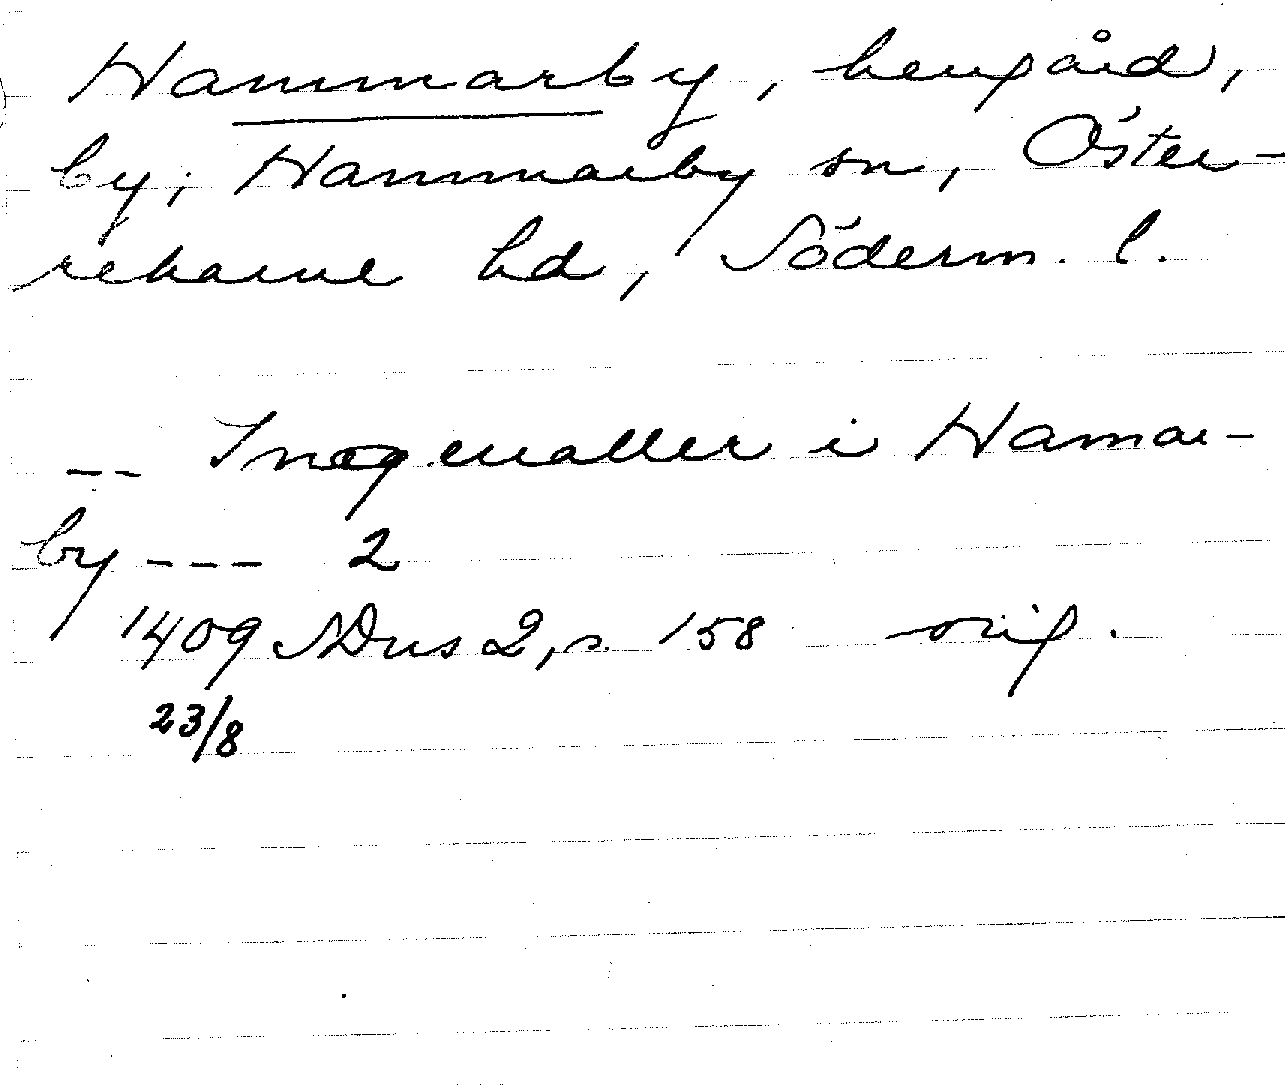 Hammarby, herrgård,
by, Hammarby sn, Öster-
rekarne hd, Söderm. l.
-- Inegerualler i Hamar-
by --- 2
1409 SDns 2, s. 158 orig.
23/8